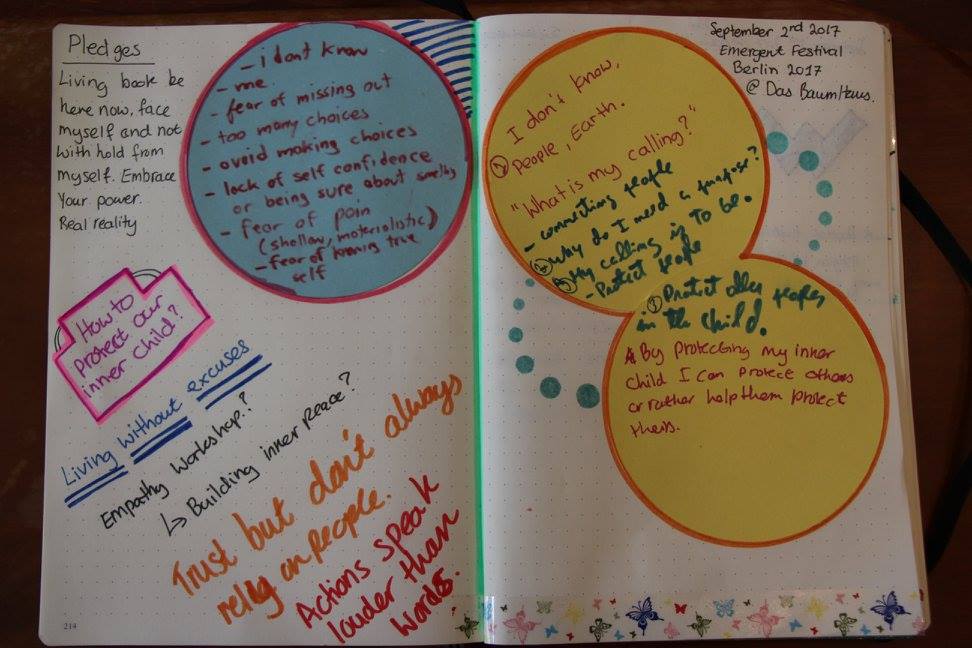 Pledges
Living book be
here now, face
myself and not
with hold from
myself. Embrace
Your power.
Real reality
- i dont know
- me
- fear of missing out
- too many choices
- avoid making choices
- lack of self confidence
or being sure about
- fear of pain
(shallow, materialistic)
- fear of knowing true
self
How to
protect our
inner child?
Living without excuses
Empathy Workshop?
↳ Building inner peace?
Trust but don't always
relly on people.
Actions speak
louder than
words.
214
September 2nd 2017
Emergent Festival
Berlin 2017
@ Das BaumHaus.
I don't know,
People, Earth.
"What is my calling?"
- connecting people
Why do I need a purpose?
My calling is to be.
- Protect people
Protect other peoples
in the child.
By protecting my inner
child I can protect others
or rather help them protect
theirs.